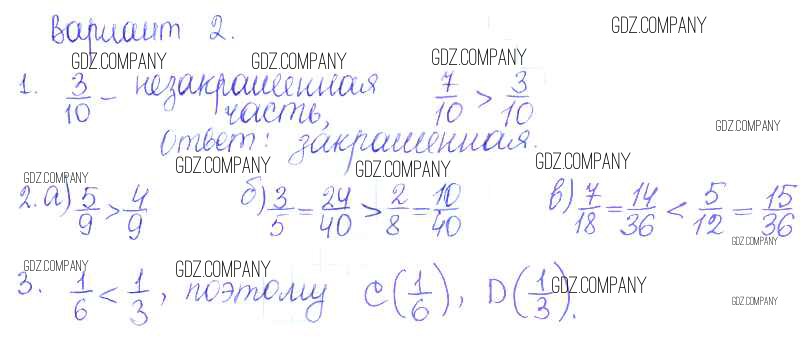 Вариант 2.
GDZ.COMPANY
GDZ.COMPANY GDZ.COMPANY GDZ.COMPANY
1. 3/10 – незакрашенная часть, 7/10 > 3/10
Ответ: закрашенная.
GDZ.COMPANY
GDZ.COMPANY GDZ.COMPANY GDZ.COMPANY
GDZ.COMPANY
2. а) 5/9 > 4/9 б) 3/5 = 24/40 > 2/8 = 10/40 в) 7/18 = 14/36 < 5/12 = 15/36
GDZ.COMPANY
GDZ.COMPANY GDZ.COMPANY
3. 1/6 < 1/3, поэтому C(1/6), D(1/3).
GDZ.COMPANY
GDZ.COMPANY